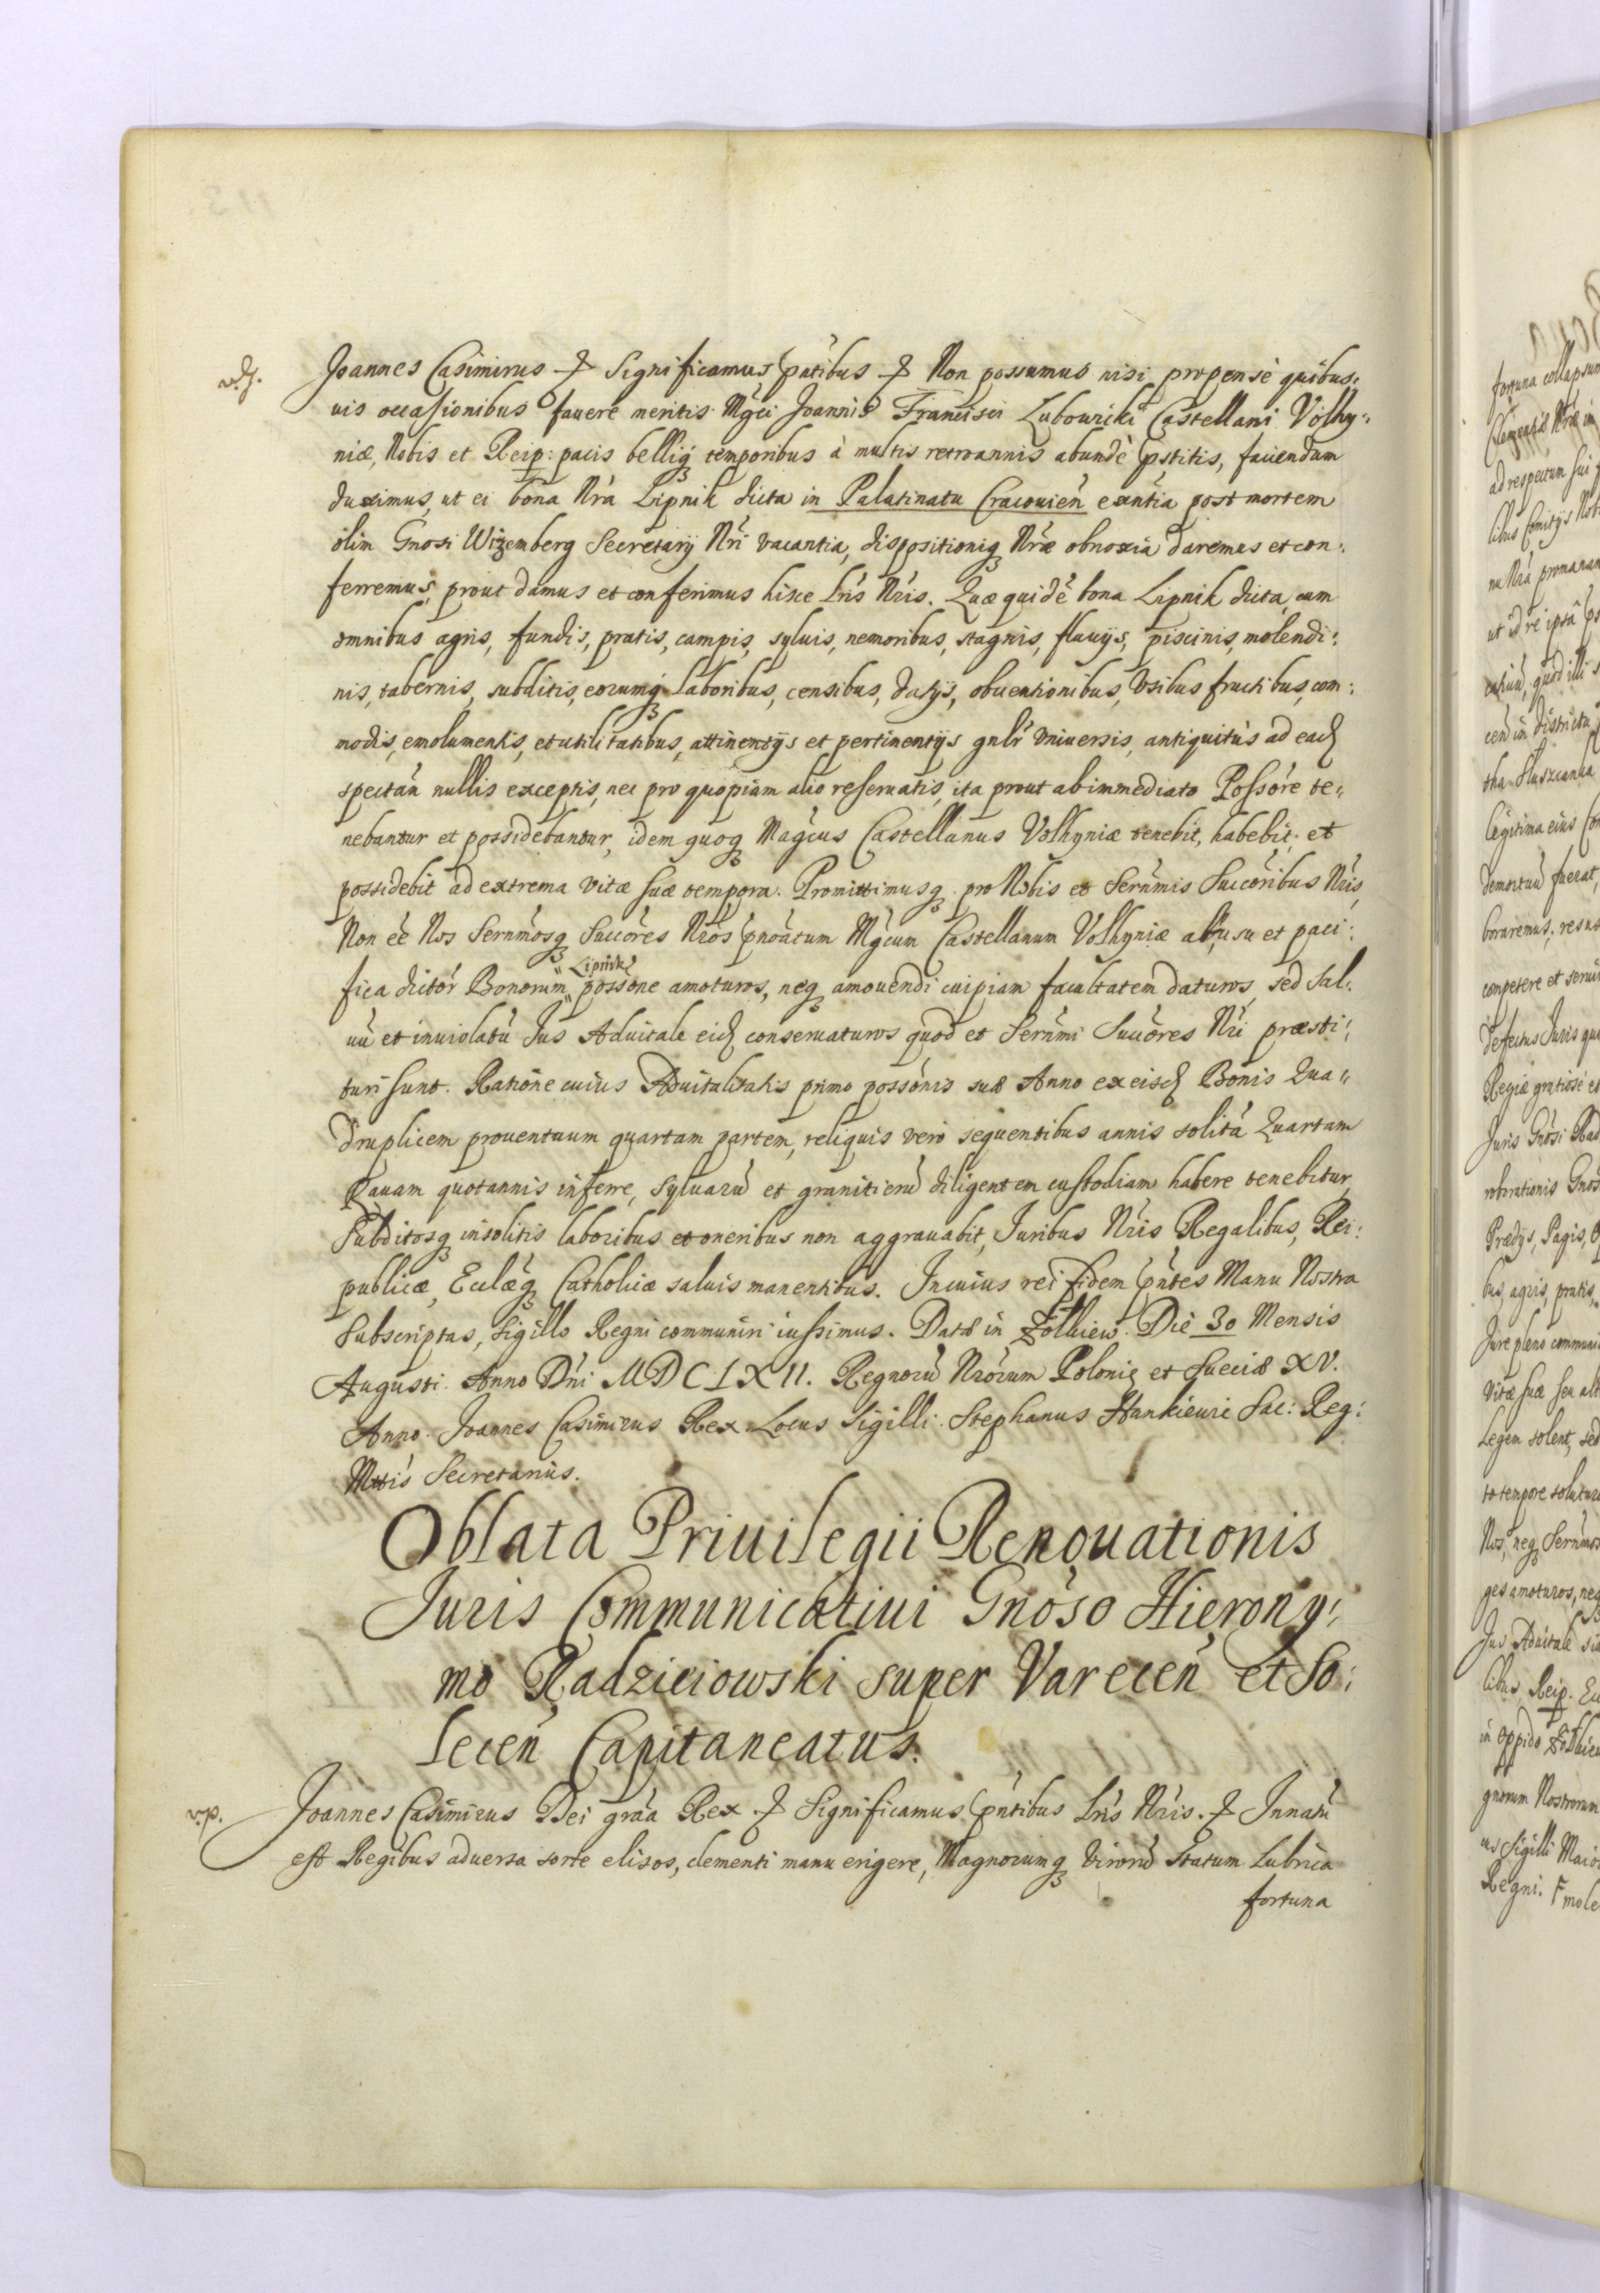 Joannes Casimirus & Significamus pñtibus & Non possumus nisi propensè quibus:
uis occasionibus fauere meritis Mgci Joannis Francisci Lubowicki Castellani Volhy:
niæ, Nobis et Reip: pacis belliq; temporibus à multis retroannis abundè pstitis, faciendum
duximus, ut ei bona Nra Lipnik dicta in Palatinatu Cracouien exantia post mortem
olim Gnosi Wizemberg Secretarij Nri vacantia, dispositioniq; Nræ obnoxia daremus et con:
ferremus, prout damus et conferimus hisce Lris Nris. Quæ quidẽ bona Lipnik dicta, cum
omnibus agris, fundis, pratis, campis, syluis, nemoribus, stagnis, fluuijs, piscinis, molendi:
nis, tabernis, subditis, eorumq; laboribus, censibus, datijs, obuentionibus, Vsibus fructibus, com:
modis, emolumentis, et utilitatibus, attinentijs et pertinentijs gnlr vniuersis, antiquitùs ad ead
spectañ nullis exceptis, nec pro quopiam alio reseruatis, ita prout ab immediato Possore te"
nebantur et possidebantur, idem quoq; Magcus Castellanus Volhyniæ tenebit, habebit, et
possidebit ad extrema vitæ suæ tempora. Promittimusq; pro Nobis et Sernmis Succoribus Nris,
Non eẽ Nos Sernmosq; Succores Nros pnoatum Mgcum Castellanum Volhyniæ ab usu et paci:
Lipnik
fica dictor Bonorum possone amoturos, neq; amouendi cuipiam facultatem daturos, sed sal:
uũ et inuiolatũ Jus Aduitale eid conseruaturos quod et Sernmi Succores Nri præsti:
turi sunt. Ratione cuius Aduitalitatis primo possonis suæ Anno ex eisd Bonis Qua"
druplicem prouentuum quartam partem, reliquis verò sequentibus annis solitã Quartam
Rauam quotannis inferre, syluarũ et granitierũ diligentem custodiam habere tenebitur,
Subditosq; insolitis laboribus et oneribus non aggrauabit, Juribus Nris Regalibus, Rei:
publicæ, Ecclæq; Catholicæ saluis manentibus. In cuius rei fidem pntes Manu Nostra
Subscriptas, Sigillo Regni communiri iussimus. Datæ in Zolkiew. Die 30 Mensis
Augusti. Anno Dni MDCLXII. Regnorũ Nrorum Poloniæ et Sueciæ XV.
Anno. Joannes Casimirus Rex. Locus Sigilli. Stephanus Hankieuic Sac: Reg:
Mttis Secretarius.
Oblata Priuilegii Renouationis
Juris Communicatiui Gnoso Hierony:
mo Radzieiowski super Varecen et So:
lecen Capitaneatus.
Joannes Casimirus Dei graa Rex & Significamus pntibus Lris Nris. & Innatũ
est Regibus aduersa sorte elisos, clementi manu erigere, Magnorumq; Virorũ statum Lubrica
fortuna